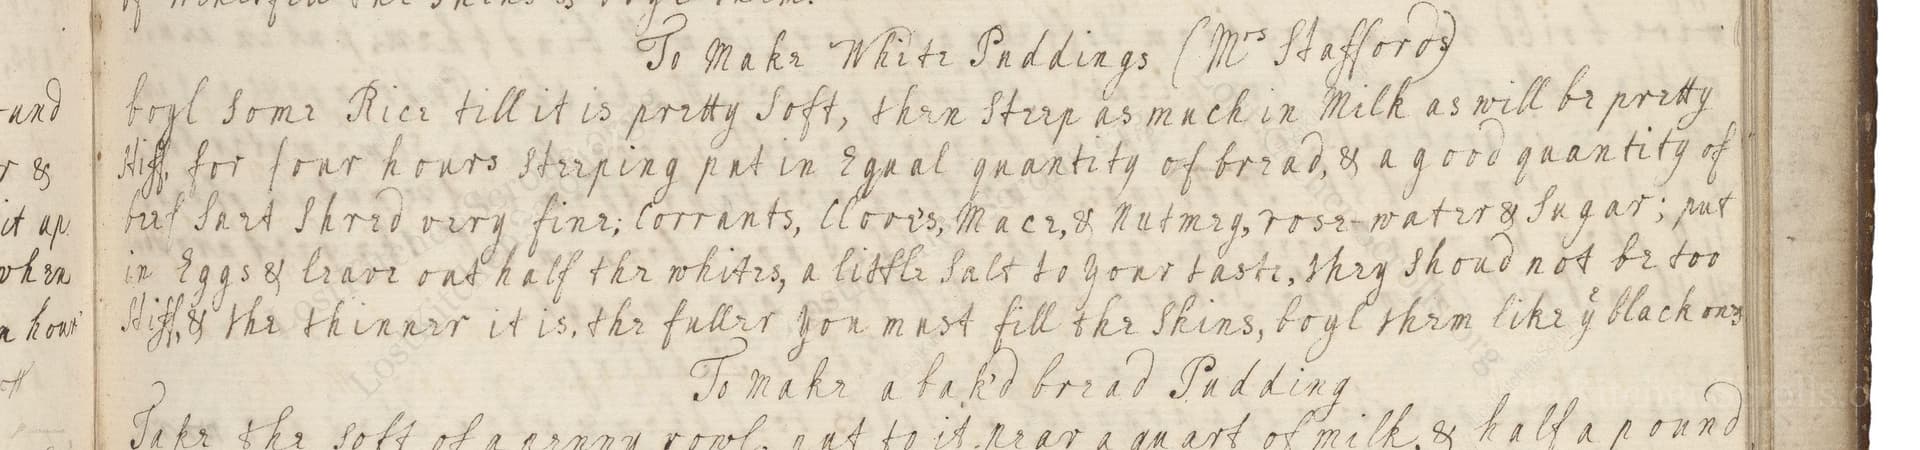 To Make White Puddings (Mrs Staffords)
boyl some Rice till it is pretty soft, then steep as much in Milk as will be pretty
stiff, for four hours steeping put in Equal quantity of bread, & a good quantity of
beef suet shred very fine; Corrants, Cloves, Mace, & Nutmeg, rose-water & Sugar; put
in Eggs & leave out half the whites, a little salt to your taste, they shoud not be too
stiff, & the thinner it is, the fuller you must fill the skins, boyl them like ye black ones
To Make a bak'd bread Pudding
Take the soft of a penny rowl, put to it near a quart of milk, & half a pound
und
r &
it up
when
n hour